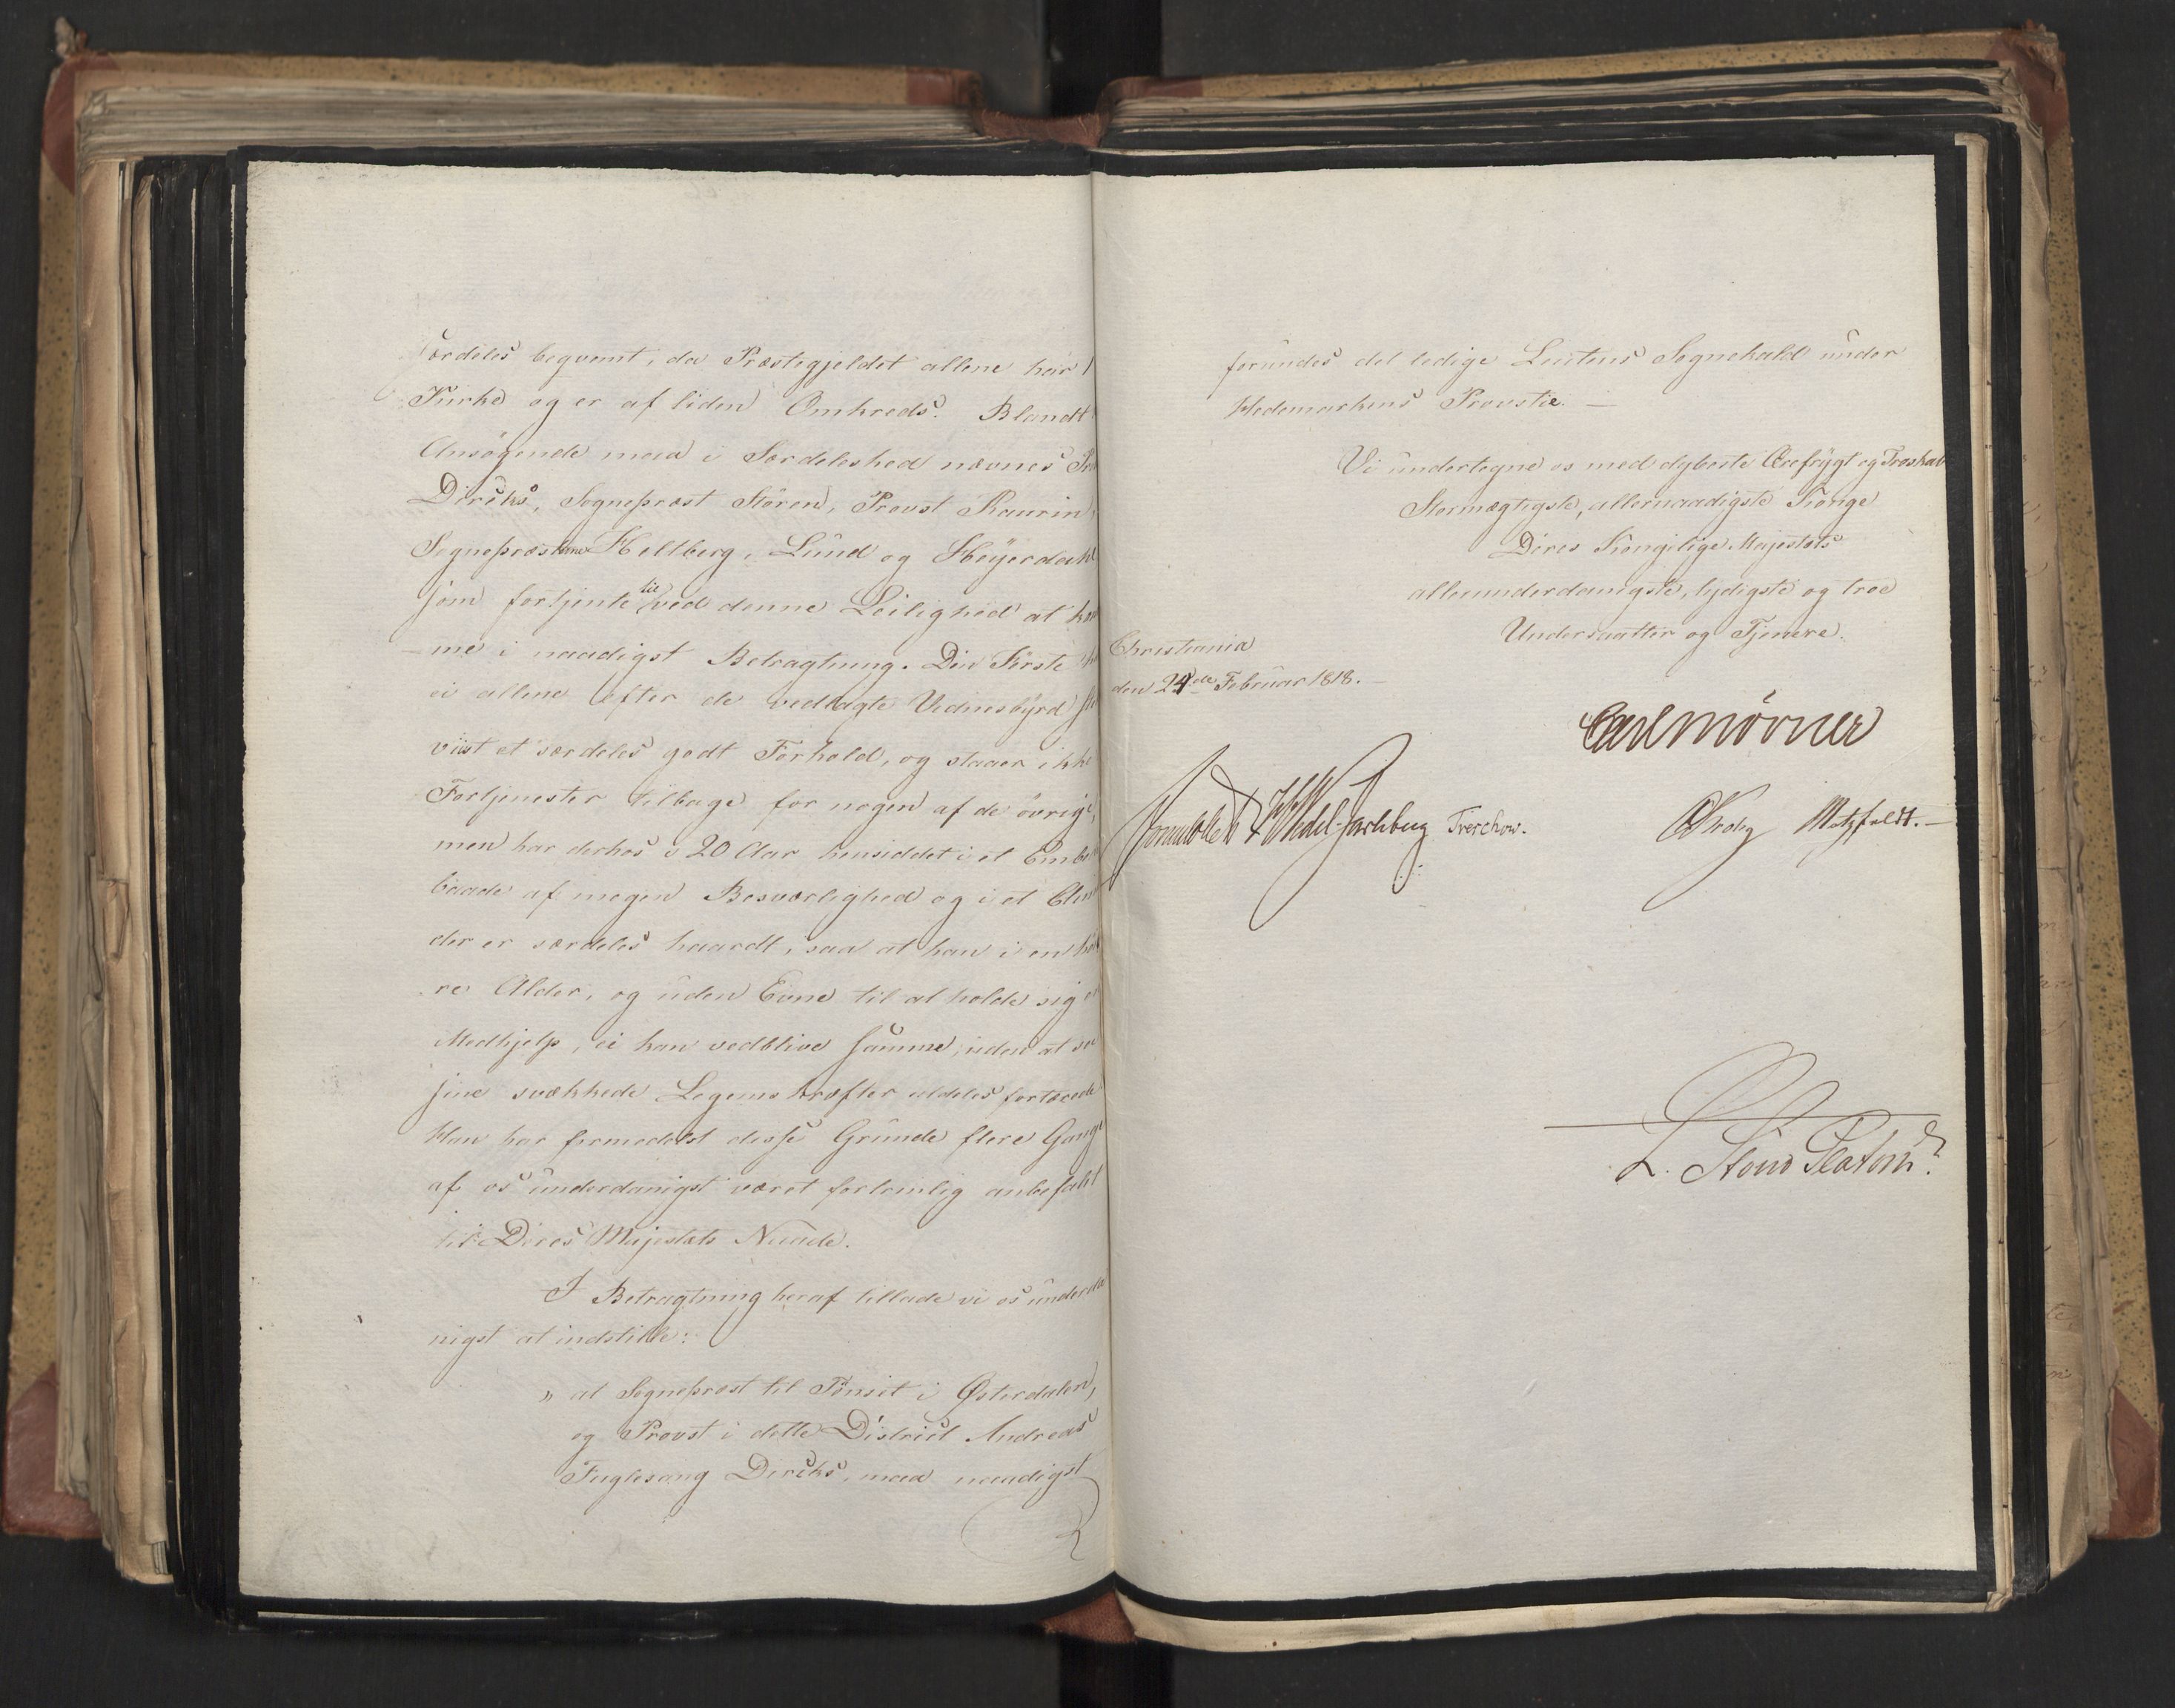 særdeles beqvemt, da Præstegjeldet allene har 1
Kirke og er af liden Omkreds. Blandt
Ansøgende maa i Særdeleshed nævnes
Diriks, Sognepræst Stören, Provst Kaurin
Sognepræsterne Heltberg, Lund og Heyerdahl
som fortjente til ved denne Leilighed at kom
me i naadigst Betragtning. Den Første
ei allene efter de vedlagte Vidnesbyrd
viist et særdeles godt Forhold, og staaer ikke
Fortjenester tilbage for nogen af de övrige,
men har derhos i 20 Aar hensiddet i et Embe
baade af megen Besværlighed og i et Clim
der er særdeles haardt, saa at han i en höi
re Alder, og uden Evne til at holde sig
Medhjelp, ei kan vedblive samme, uden at see
sine svækkede Legems kræfter aldeles fortærede
Han har formedelst disse Grunde flere Gange
af os underdanigst været fortrinlig anbefalet
til Deres Majestæts Naade.
I Betragtning heraf tillade vi os underda
nigst at indstille:
„ at Sognepræst til Tönset i Østerdalen,
og Provst i dette District Andreas
Fuglesang Diriks, maa naadigst
forundes det ledige Leutens Sognekald under
Hedemarkens Provstie. —
Vi undertegne os med dybeste Ærefrygt og Troskab
Stormægtigste, allernaadigste Konge
Deres Kongelige Majestæts
allerunderdanigste, lydigste og troe
Undersaatter og Tjenere.
Christiania
den 24de Februar 1818. —
Carl Mörner
Sommerhielm HWedel-Jarlsberg Treschow.
CKrohg Motzfeldt. —
L. Stoud Platou